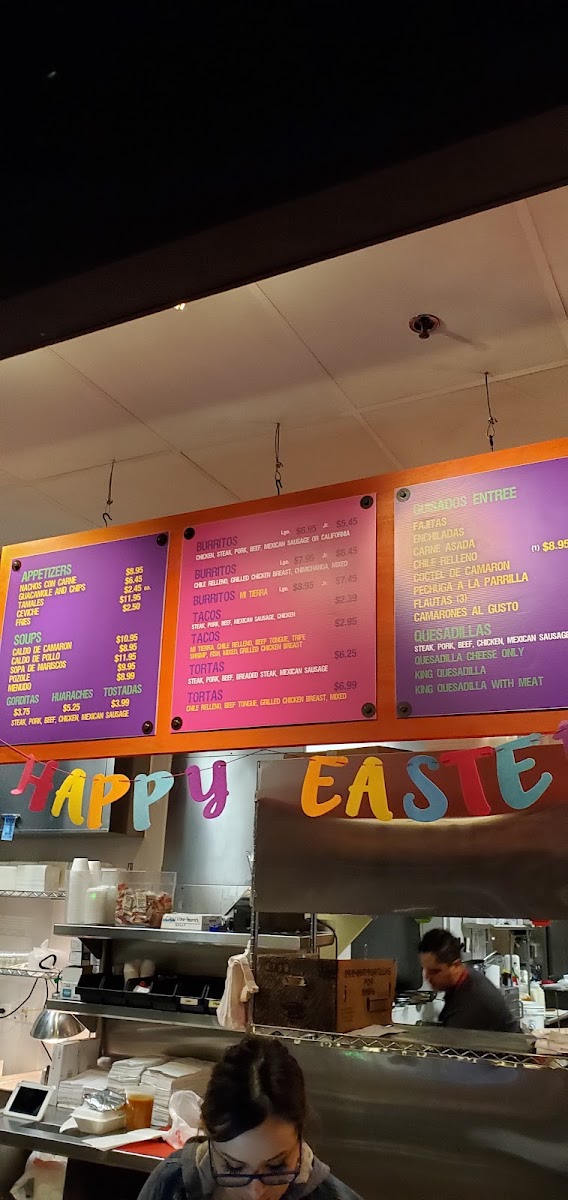 APPETIZERS
NACHOS CON CARNE $8.95
GUACAMOLE AND CHIPS $6.45
TAMALES $2.45 ea.
CEVICHE $11.95
FRIES $2.50
SOUPS
CALDO DE CAMARON $10.95
CALDO DE POLLO $8.95
SOPA DE MARISCOS $11.95
POZOLE $9.95
MENUDO $8.99
GORDITAS HUARACHES TOSTADAS
$3.75 $5.25 $3.99
STEAK, PORK, BEEF, CHICKEN, MEXICAN SAUSAGE
BURRITOS Lgn. $6.95 Jr. $5.45
CHICKEN, STEAK, PORK, BEEF, MEXICAN SAUSAGE OR CALIFORNIA
BURRITOS Lgn. $7.95 Jr. $6.45
CHILE RELLENO, GRILLED CHICKEN BREAST, CHIMICHANGA, MIXED
BURRITOS MI TIERRA Lgn. $8.95 Jr. $7.45
TACOS $2.39
STEAK, PORK, BEEF, MEXICAN SAUSAGE, CHICKEN
TACOS $2.95
MI TIERRA, CHILE RELLENO, BEEF TONGUE, TRIPE
SHRIMP, FISH, MIXED, GRILLED CHICKEN BREAST
TORTAS $6.25
STEAK, PORK, BEEF, BREADED STEAK, MEXICAN SAUSAGE
TORTAS $6.99
CHILE RELLENO, BEEF TONGUE, GRILLED CHICKEN BREAST, MIXED
GUISADOS ENTREE
FAJITAS
ENCHILADAS
CARNE ASADA
CHILE RELLENO (1) $8.95
COCTEL DE CAMARON
PECHUGA A LA PARRILLA
FLAUTAS (3)
CAMARONES AL GUSTO
QUESADILLAS
STEAK, PORK, BEEF, CHICKEN, MEXICAN SAUSAGE
QUESADILLA CHEESE ONLY
KING QUESADILLA
KING QUESADILLA WITH MEAT
HAPPY EASTER